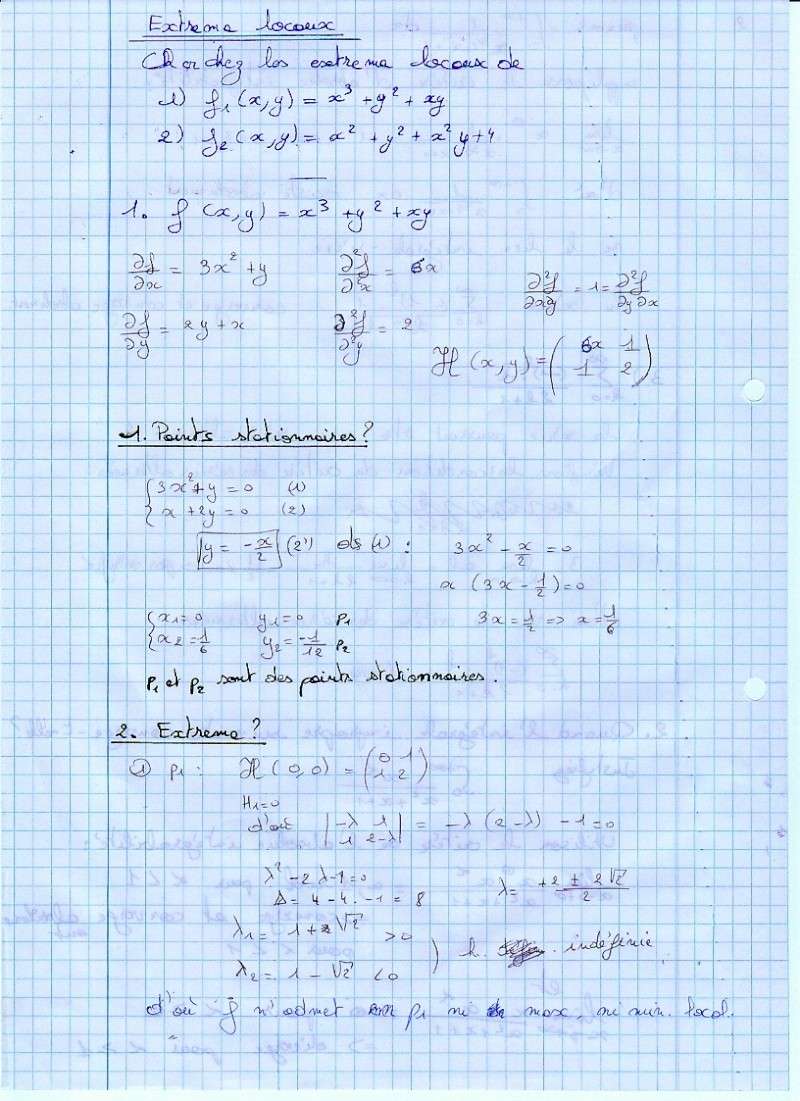 Extrema locaux
Cherchez les extrema locaux de
1) f₁(x,y) = x³ + y² + xy
2) f₂(x,y) = x² + y² + x²y + 4
1. f(x,y) = x³ + y² + xy
∂f/∂x = 3x² + y    ∂²f/∂²x = 6x    ∂²f/∂x∂y = 1 = ∂²f/∂y∂x
∂f/∂y = 2y + x    ∂²f/∂²y = 2
H(x,y) = (6x 1
1 2)
1. Points stationnaires ?
{ 3x² + y = 0 (1)
{ x + 2y = 0 (2)
y = -x/2 (2') ds (1) : 3x² - x/2 = 0
x (3x - 1/2) = 0
{ x₁ = 0    y₁ = 0 p₁    3x = 1/2 => x = 1/6
{ x₂ = 1/6    y₂ = -1/12 p₂
p₁ et p₂ sont des points stationnaires.
2. Extrema ?
① p₁ : H(0,0) = (0 1
1 2)
H₁=0
d'où |-λ 1
1 2-λ| = -λ (2-λ) - 1 = 0
λ² - 2λ - 1 = 0
Δ = 4 - 4. -1 = 8    λ = +2 ± 2√2 / 2
λ₁ = 1 + √2 > 0
λ₂ = 1 - √2 < 0 ) h. indéfinie
d'où f n'admet en p₁ ni max, ni min. local.